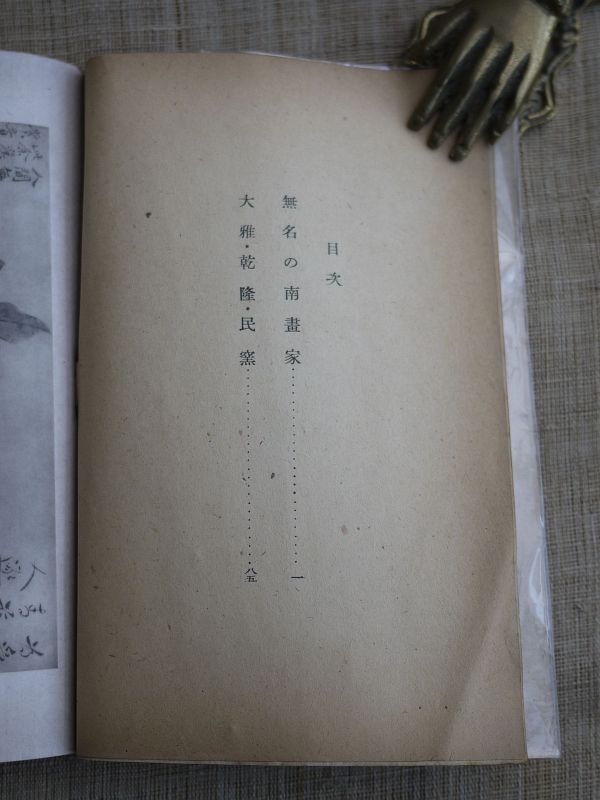 目次
無名の南畫家……………………一
大雅・乾隆・民窯……………………八五